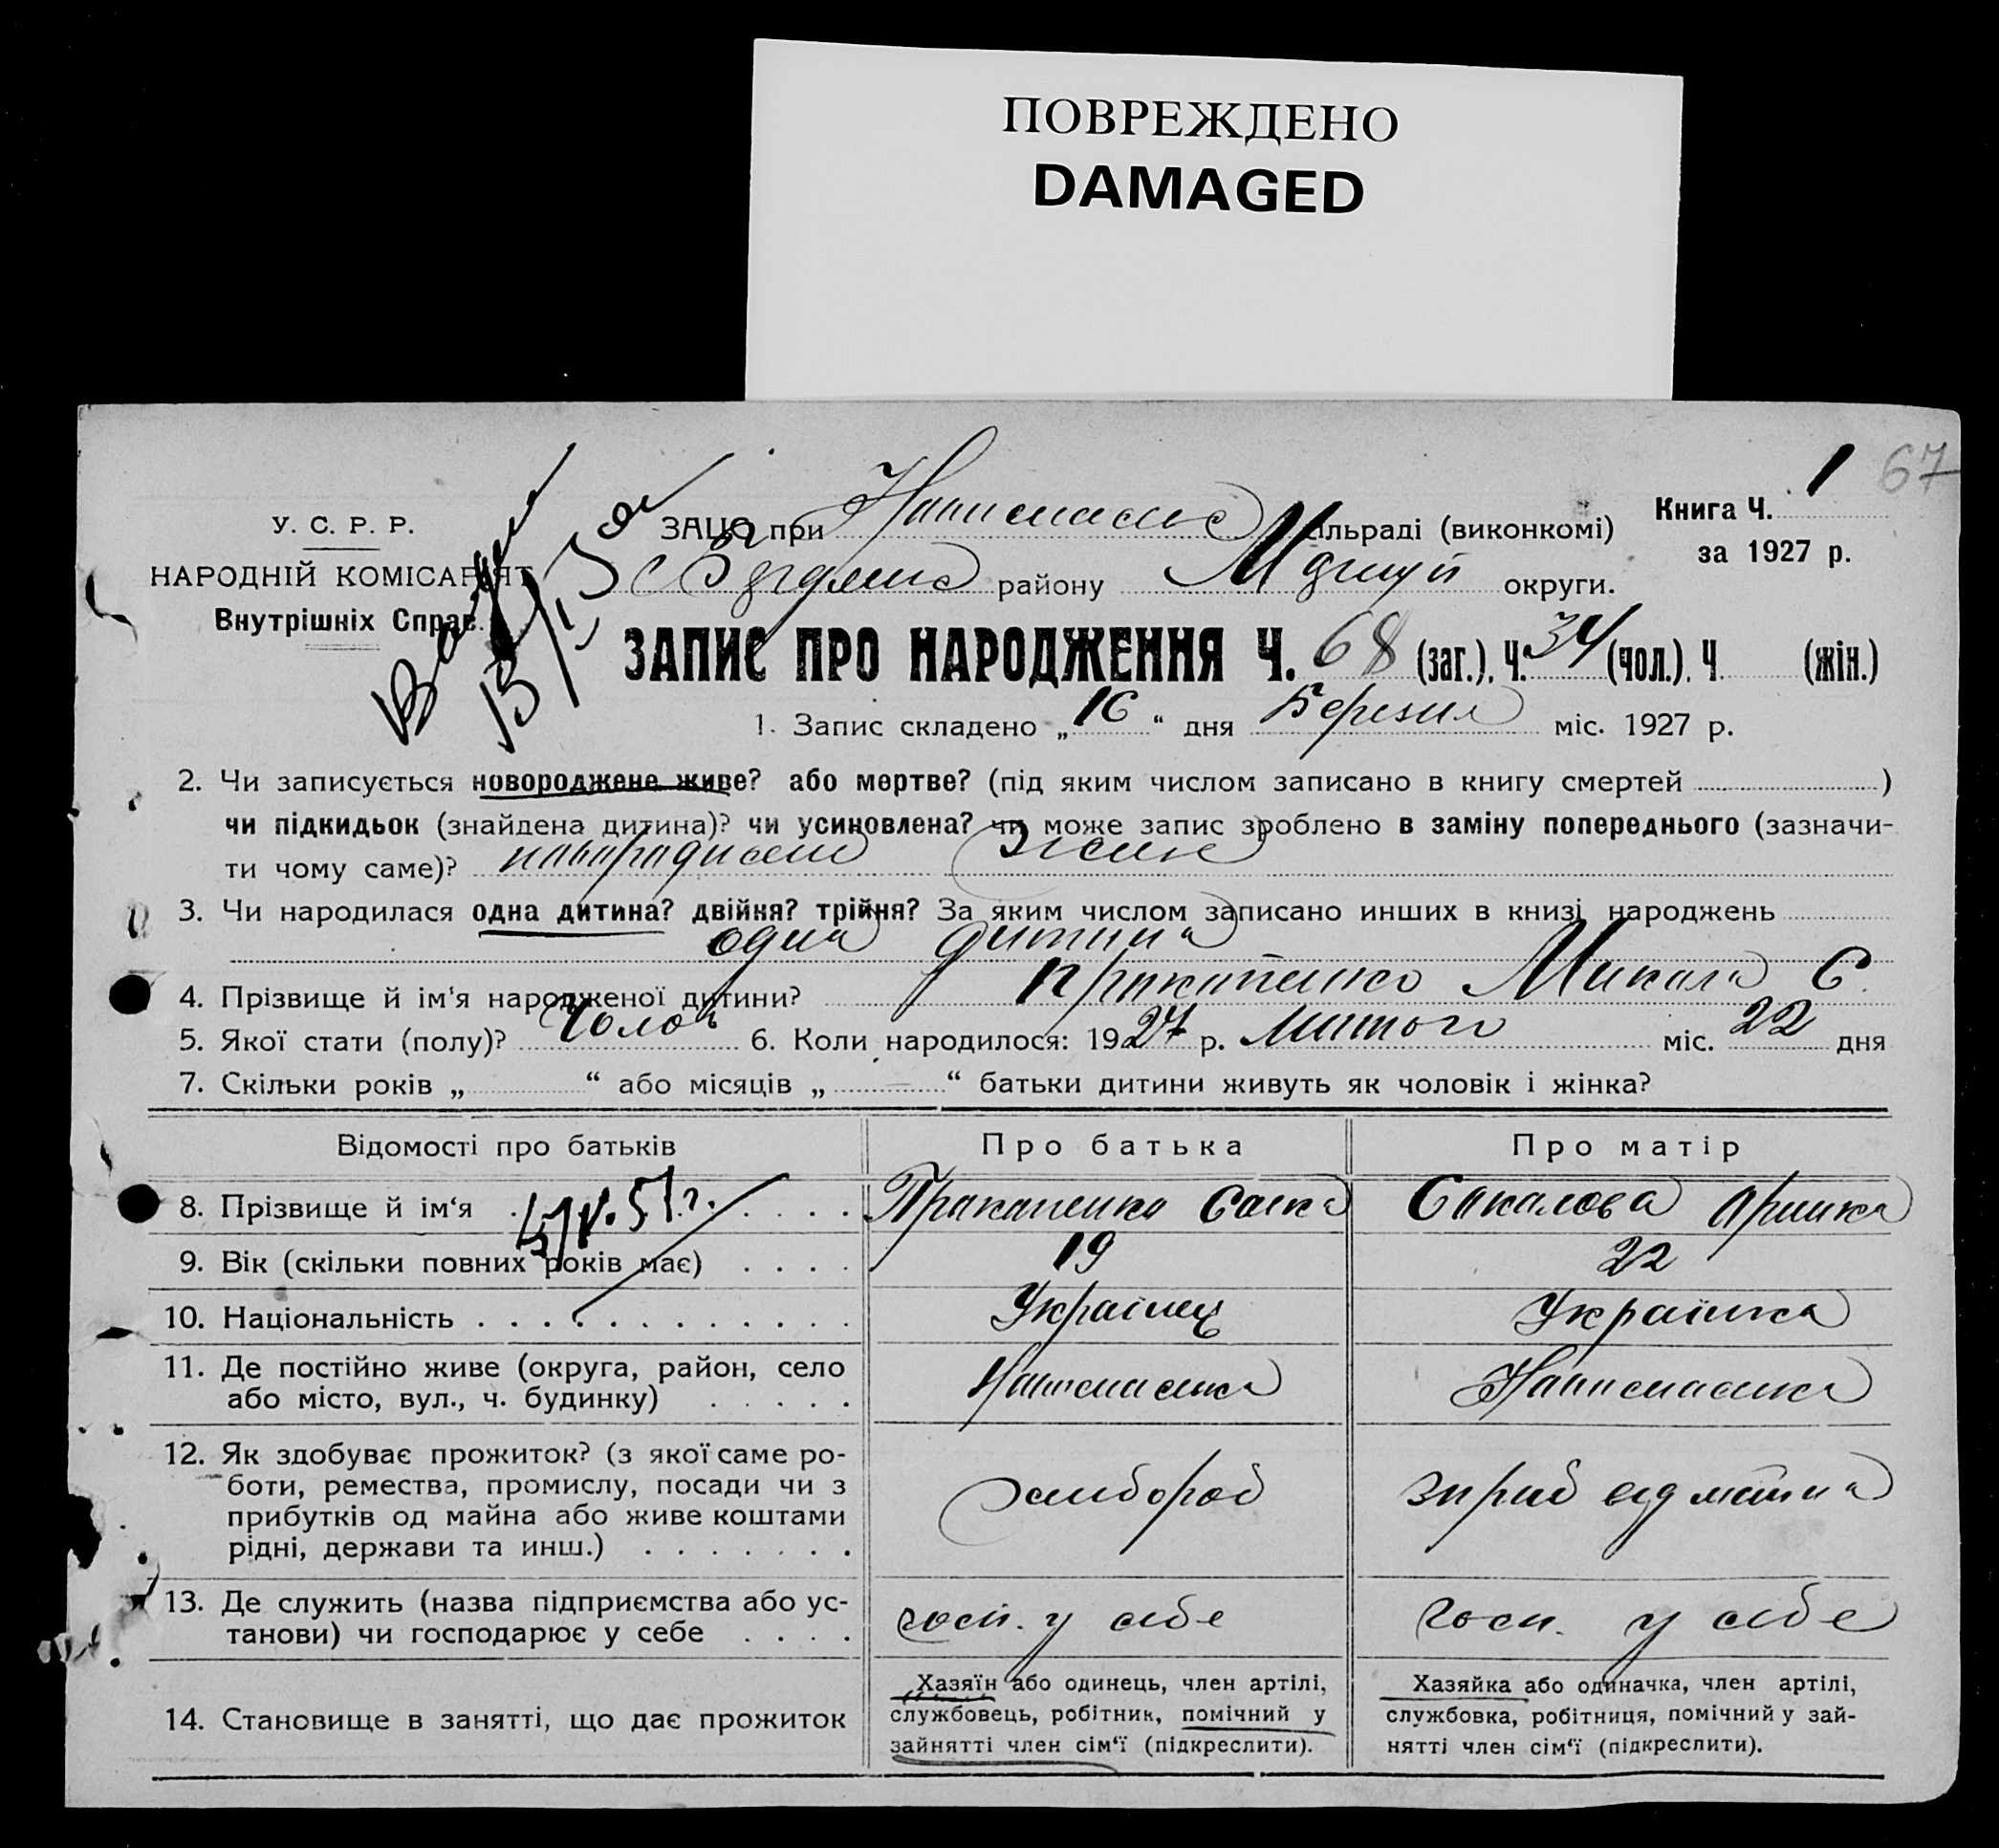 ПОВРЕЖДЕНО
DAMAGED
67
У. С. Р. Р.
НАРОДНІЙ КОМІСАРІЯТ
Внутрішніх Справ.
ЗАЦС при сільраді (виконкомі)
району округи.
Книга Ч. 1
за 1927 р.
ЗАПИС ПРО НАРОДЖЕННЯ Ч. 68 (заг.), Ч. 34 (чол.), Ч. (жін.)
1. Запис складено „16“ дня Березня міс. 1927 р.
2. Чи записується новороджене живе? або мертве? (під яким числом записано в книгу смертей )
чи підкидьок (знайдена дитина)? чи усиновлена? чи може запис зроблено в заміну попереднього (зазначи-
ти чому саме)?
3. Чи народилася одна дитина? двійня? трійня? За яким числом записано инших в книзі народжень
одна дитина
4. Прізвище й ім'я народженої дитини? Прокопенко Микола С.
5. Якої стати (полу)? Чолов 6. Коли народилося: 1927 р. Лютого міс. 22 дня
7. Скільки років „ “ або місяців „ — “ батьки дитини живуть як чоловік і жінка?
Відомості про батьків Про батька Про матір
8. Прізвище й ім‘я Пракапенко Сакалова
9. Вік (скільки повних років має) 19 22
10. Національність Українец Українка
11. Де постійно живе (округа, район, село
або місто, вул., ч. будинку)
12. Як здобуває прожиток? (з якої саме ро-
боти, ремества, промислу, посади чи з
прибутків од майна або живе коштами
рідні, держави та инш.)
хлібороб
13. Де служить (назва підприємства або ус-
танови) чи господарює у себе
госп. у себе госп. у себе
14. Становище в занятті, що дає прожиток
Хазяїн або одинець, член артілі,
службовець, робітник, помічний у
зайнятті член сім‘ї (підкреслити).
Хазяйка або одиначка, член артілі,
службовка, робітниця, помічний у зай-
нятті член сім‘ї (підкреслити).